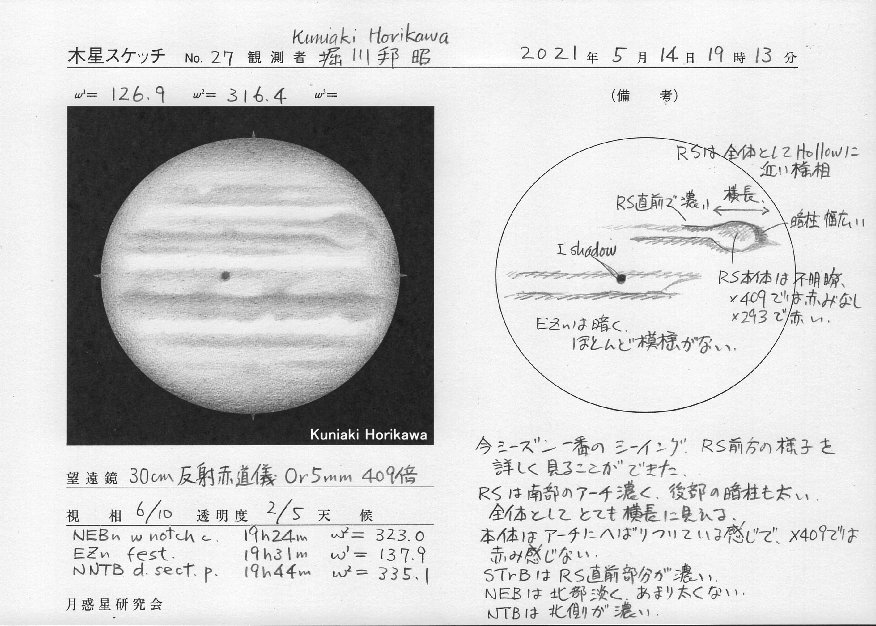 Kuniaki Horikawa
木星スケッチ No. 27 観測者 堀川邦昭 2021年 5月 14日 19時 13分
ω¹= 126.9 ω²= 316.4 ω²=
(備 考)
RSは全体としてHollowに
近い様相
RS直前で濃い
横長
暗柱幅広い
I shadow
RS本体は不明瞭、
×409では赤みなし
×293で赤い.
EZnは暗く、
ほとんど模様がない.
Kuniaki Horikawa
望遠鏡 30cm反射赤道儀 Or5mm 409倍
視 相 6/10 透明度 2/5 天 候
NEBn w notch c. 19h24m ω²= 323.0
EZn fest. 19h31m ω¹= 137.9
NNTB d. sect. p. 19h44m ω²= 335.1
月惑星研究会
今シーズン一番のシーイング、RS前方の様子を
詳しく見ることができた.
RSは南部のアーチ濃く、後部の暗柱も太い.
全体としてとても横長に見える.
本体はアーチにへばりついている感じで、×409では
赤み感じない.
STrBはRS直前部分が濃い.
NEBは北部淡く、あまり太くない.
NTBは北側が濃い.